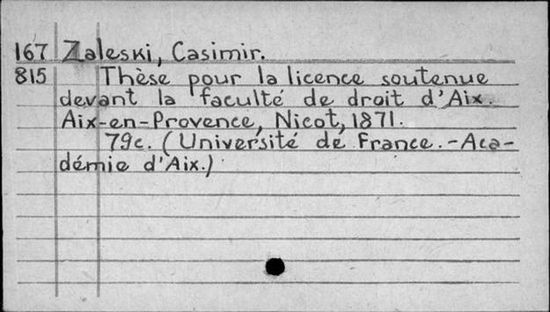 167 Zaleski, Casimir.
815 Thèse pour la licence soutenue
devant la faculté de droit d'Aix.
Aix-en-Provence, Nicot, 1871.
79c. (Université de France.-Aca-
démie d'Aix.)